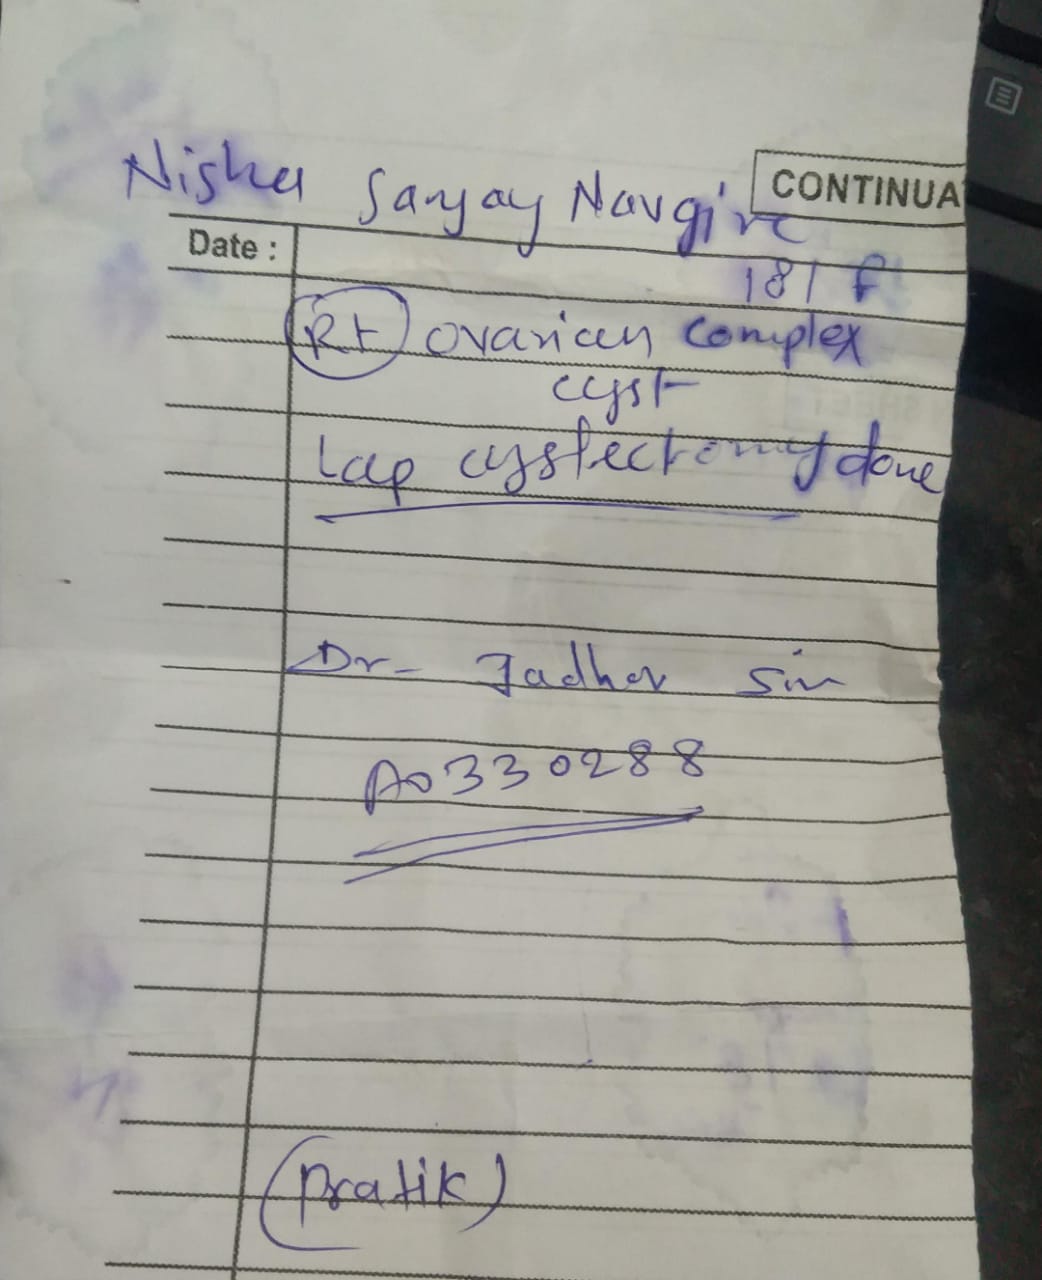 Nisha Sanjay Navgire
CONTINUA
Date :
18/F
Rt ovarian complex
cyst
Lap cystectomy done
Dr- Jadhav Sir
A0330288
(Pratik)